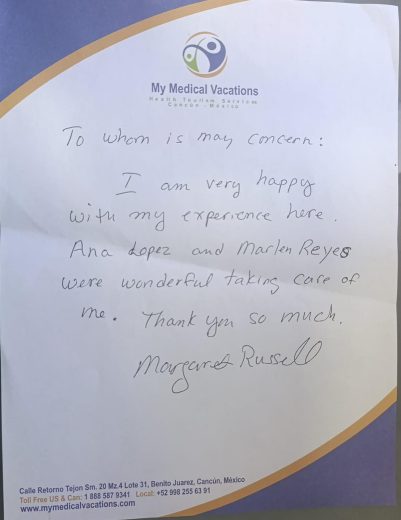 My Medical Vacations
Health Tourism Services
Cancún - México
To whom is may concern:
I am very happy
with my experience here.
Ana Lopez and Marlen Reyes
were wonderful taking care of
me. Thank you so much.
Margaret Russell
Calle Retorno Tejon Sm. 20 Mz.4 Lote 31, Benito Juarez, Cancún, México
Toll Free US & Can: 1 888 587 9341 Local: +52 998 255 63 91
www.mymedicalvacations.com